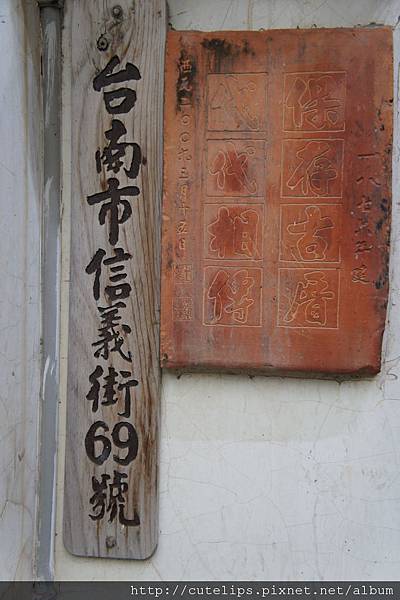 台南市信義街69號
保存古厝
代代相傳
西元二〇〇六三月十五日
http://cutelips.pixnet.net/album